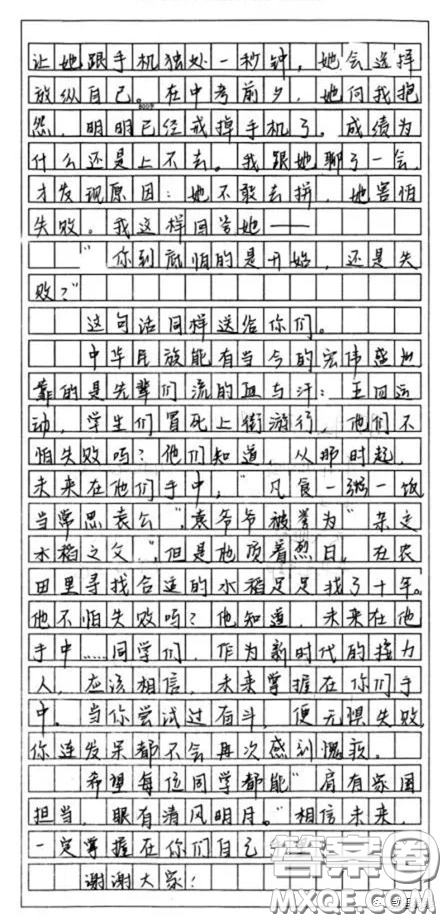 让她跟手机独处一秒钟，她会选择
放纵自己。在中考前夕，她向我抱
怨，明明已经戒掉手机了。成绩为
什么还是上不去。我跟她聊了一会，
才发现原因：她不敢去拼，她害怕
失败。我这样回答她——
“你到底怕的是开始，还是失
败？”
这句话同样送给你们。
中华民族能有当今的宏伟盛世
靠的是先辈们流的血与汗：五四运
动，学生们冒死上街游行，他们不
怕失败吗？他们知道，从那时起，
未来在他们手中，“凡食一粥一饭
当常思袁公”，袁爷爷被誉为“杂交
水稻之父”，但是他顶着烈日，在农
田里寻找合适的水稻足足找了十年。
他不怕失败吗？他知道，未来在他
手中……同学们，作为新时代的接力
人，应该相信，未来掌握在你们手
中。当你尝试过奋斗，便无惧失败，
你连发呆都不会再次感到愧疚。
希望每位同学都能“肩有家国
担当，眼有清风明月。”相信未来，
一定掌握在你们自己
谢谢大家！
答案圈
MXQE.COM